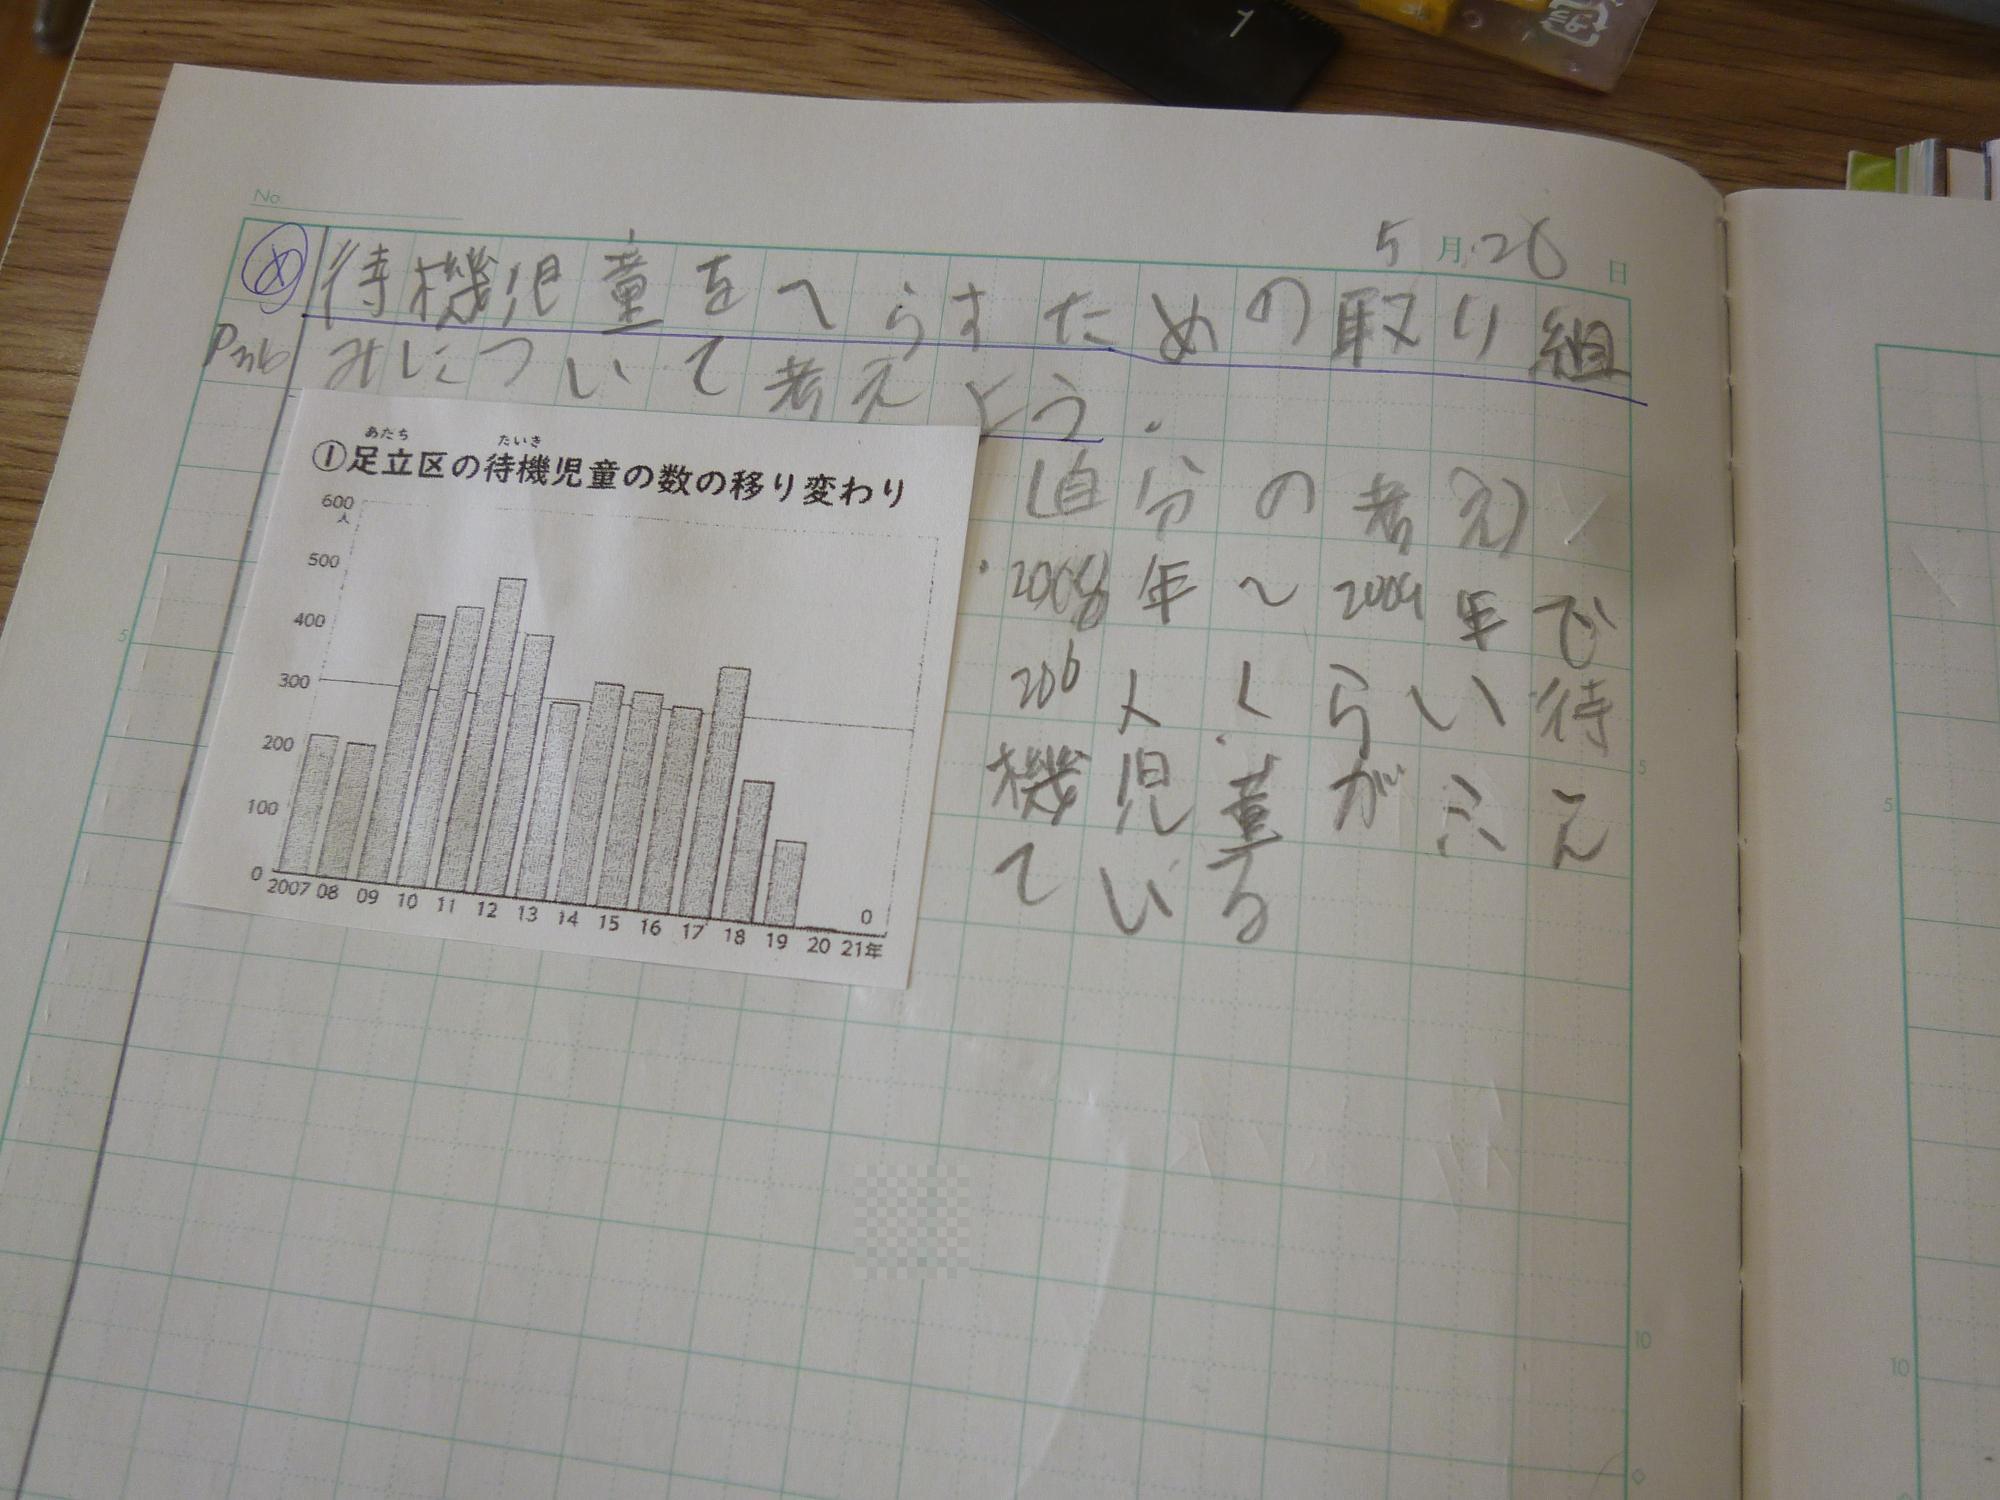 1
No.
5月26日
め 待機児童をへらすための取り組
P36 みについて考えよう。
①足立区の待機児童の数の移り変わり
あだち
たいき
600
人
500
400
300
200
100
0
0
2007 08 09 10 11 12 13 14 15 16 17 18 19 20 21年
(自分の考え)
・2008年〜2009年で
200人くらい待
機児童がふえ
ている
5
5
5
10
10